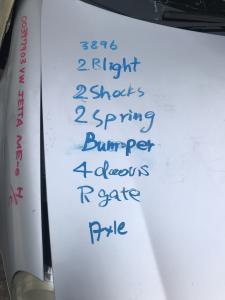 3896
2 Blight
2 Shocks
2 Spring
Bumper
4 doours
R gate
Axle
00317903 VW JETTA ME-0